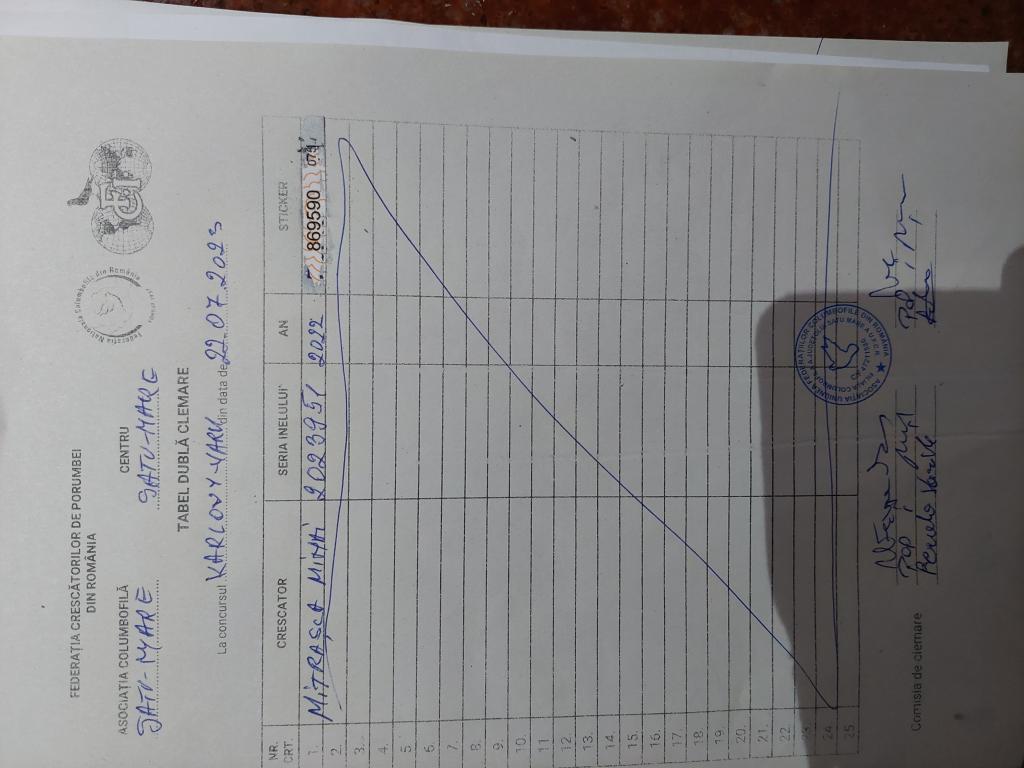 FEDERAȚIA CRESCĂTORILOR DE PORUMBEI
DIN ROMÂNIA
Federația Națională Columbofilă din România
ASOCIAȚIA COLUMBOFILĂ
SATU-MARE
CENTRU
SATU-MARE
TABEL DUBLĂ CLEMARE
La concursul KARLOVY-VARY din data de 22 07 2023
NR. CRT. CRESCATOR SERIA INELULUI AN STICKER
1. MITRAȘCA MIHAI 2023951 2022 869590
2.
3.
4.
5
6.
7.
8.
9.
10.
11
12.
13.
14.
15.
16.
17.
18.
19.
20.
21.
22.
23
24
25
ASOCIAȚIA UNIUNEA FEDERAȚIILOR COLUMBOFILE DIN ROMÂNIA
Comisia de clemare
Pop